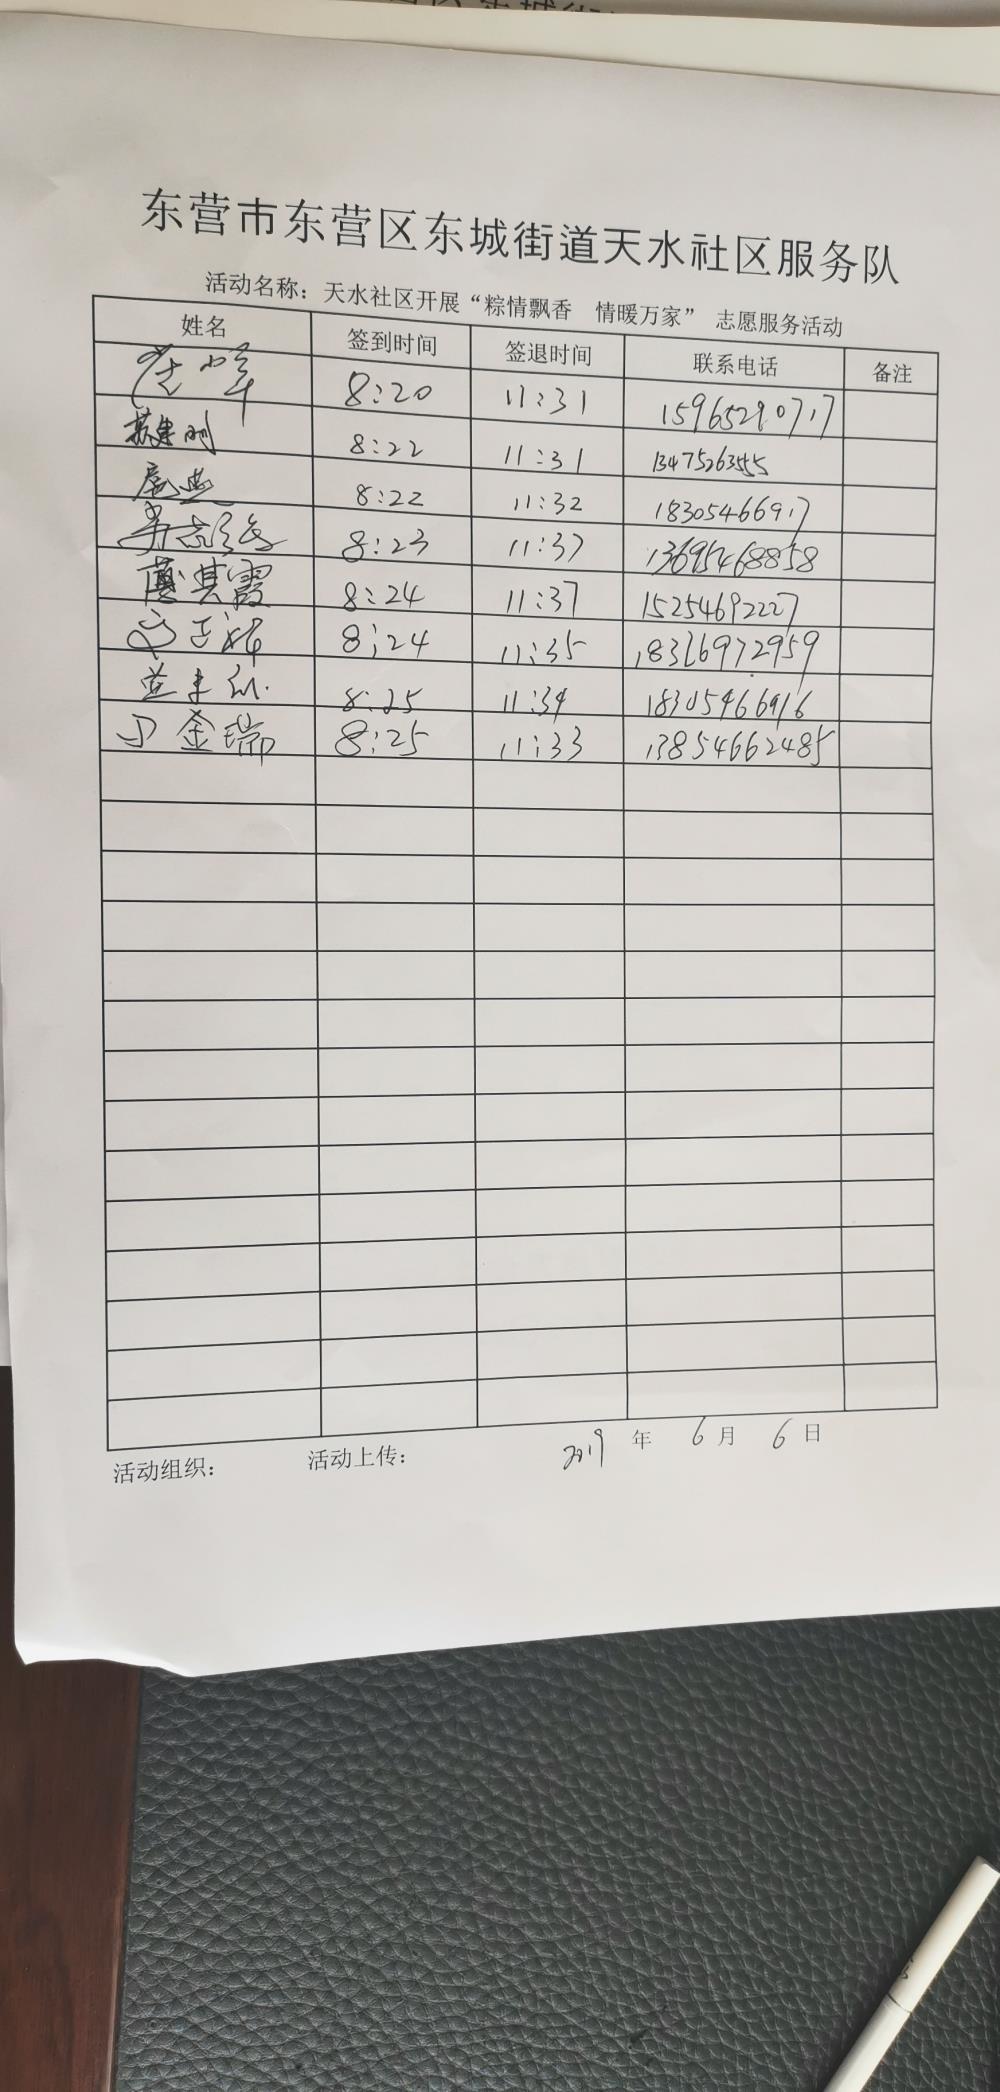 东营市东营区东城街道天水社区服务队
活动名称：天水社区开展“粽情飘香 情暖万家” 志愿服务活动
姓名 签到时间 签退时间 联系电话 备注
8:20 11:31 15965290717
8:22 11:31 1347526355
8:22 11:32 18305466917
8:23 11:37 13695468858
薄其霞 8:24 11:37 15254692227
8:24 11:35 18326972959
8:25 11:34 18305466916
金瑞 8:25 11:33 13854662485
活动组织： 活动上传： 2019 年 6 月 6 日